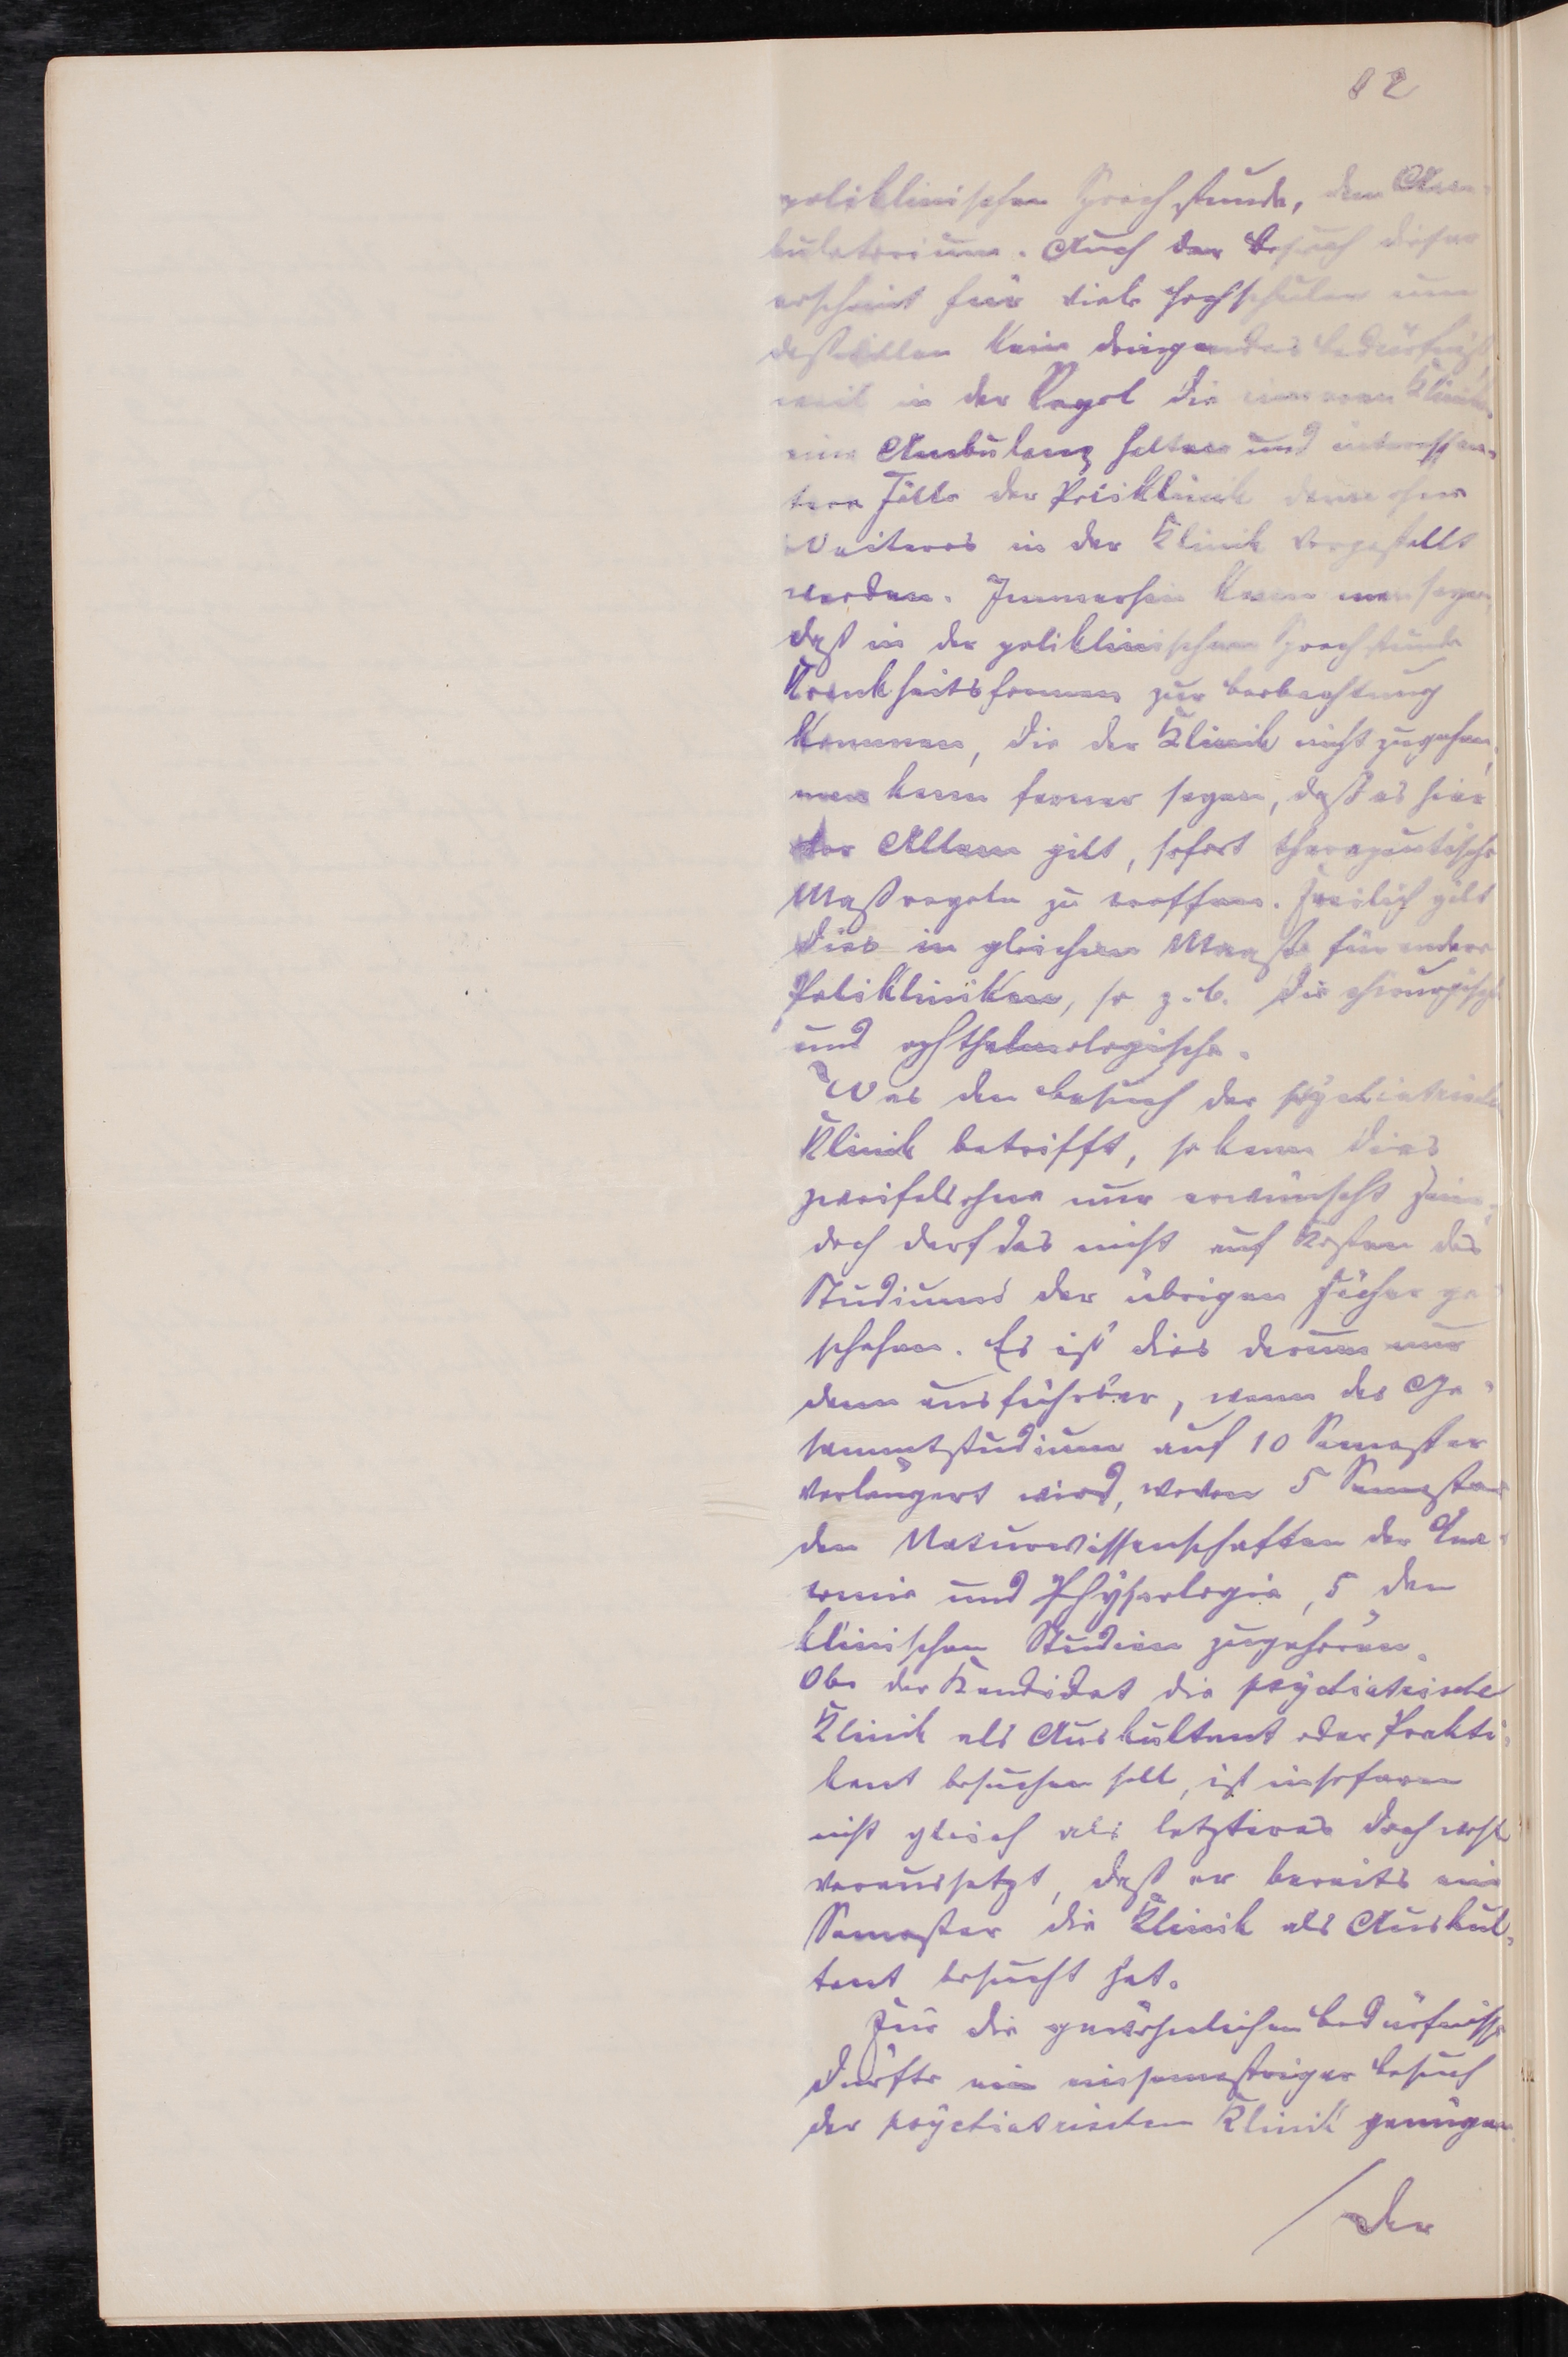 82
poliklinischen Sprechstunde, dem Am-
bulatorium. Auch der Besuch dieser
erscheint für viele Hochschulen um
deßwillen kein dringendes Bedürfniß,
weil in der Regel die inneren Kliniken
eine Ambulanz halten und interessan-
tere Fälle der Poliklinik dann ohne
Weiteres in der Klinik vorgestellt
werden. Immerhin kann man sagen,
daß in der poliklinischen Sprechstunde
Krankheitsformen zur Beobachtung
kommen, die der Klinik nicht zugehen,
man kann ferner sagen, daß es hier
vor Allem gilt, sofort therapeutische
Maßregeln zu treffen. Freilich gilt
dies in gleichem Maaße für andere
Polikliniken, so z. B. die chirurgische
und ophthalmologische.
Was den Besuch der psychiatrischen
Klinik betrifft, so kann dies
zweifelsohne nur erwünscht sein,
doch darf das nicht auf Kosten des
Studiums der übrigen Fächer ge-
schehen. Es ist dies darum nur
dann ausführbar, wenn das Ge-
sammtstudium auf 10 Semester
verlängert wird, wovon 5 Semester
den Naturwissenschaften der Ana-
tomie und Physiologie, 5 den
klinischen Studien zugehören.
Ob der Kandidat die psychiatrische
Klinik als Auskultant oder Prakti-
kant besuchen soll, ist insofern
nicht gleich als letzteres doch wohl
voraussetzt, daß er bereits ein
Semester die Klinik als Auskul-
tant besucht hat.
Für die gewöhnlichen Bedürfnisse
dürfte ein einsemestriger Besuch
der psychiatrischen Klinik genügen.
/der